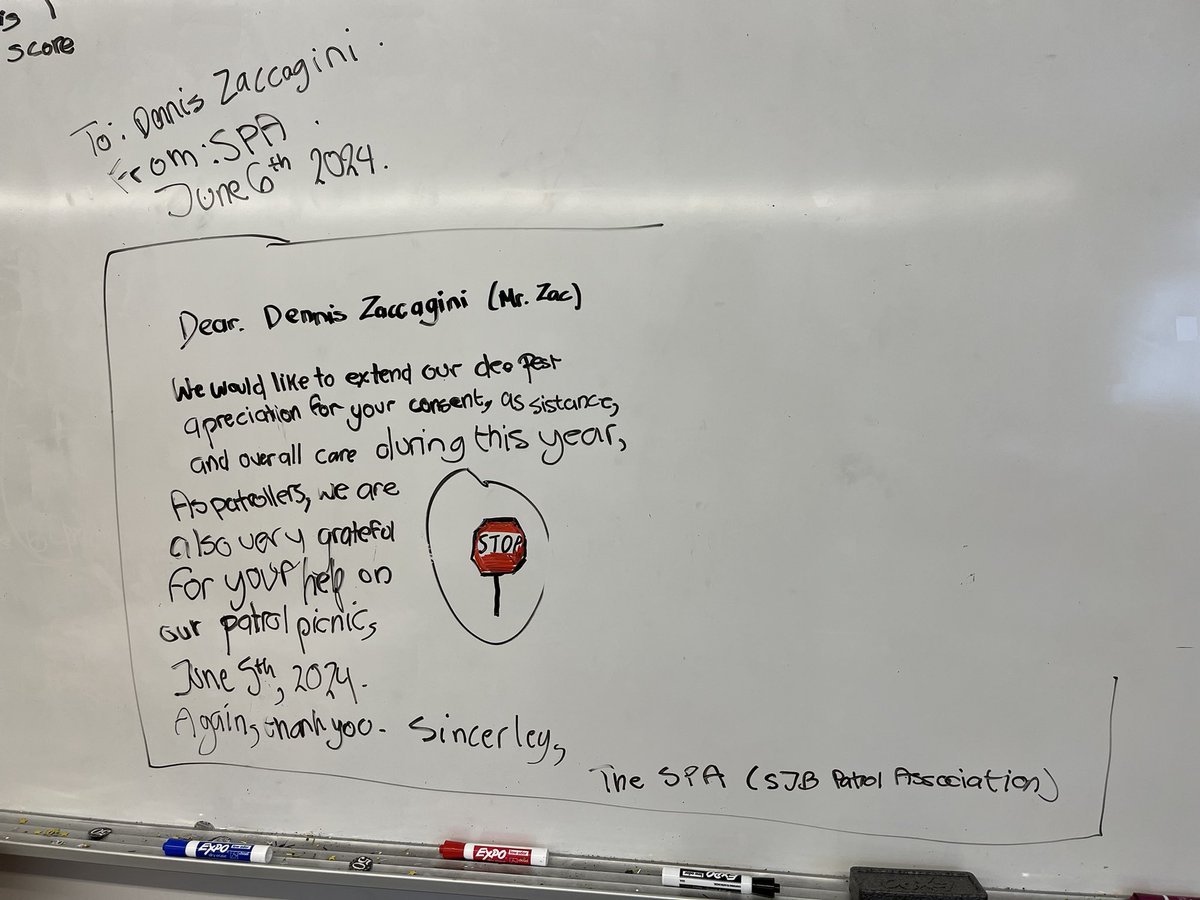 score
To: Dennis Zaccagini.
From: SPA.
June 6th 2024.
Dear. Dennis Zaccagini (Mr. Zac)
We would like to extend our deepest
apreciation for your consent, assistance,
and overall care during this year,
As patrollers, we are
also very grateful
for your help on
our patrol picnic,
June 5th, 2024.
Again, thank you. Sincerley,
The SPA (SJB Patrol Association)
STOP
EXPO
EXPO
EXPO